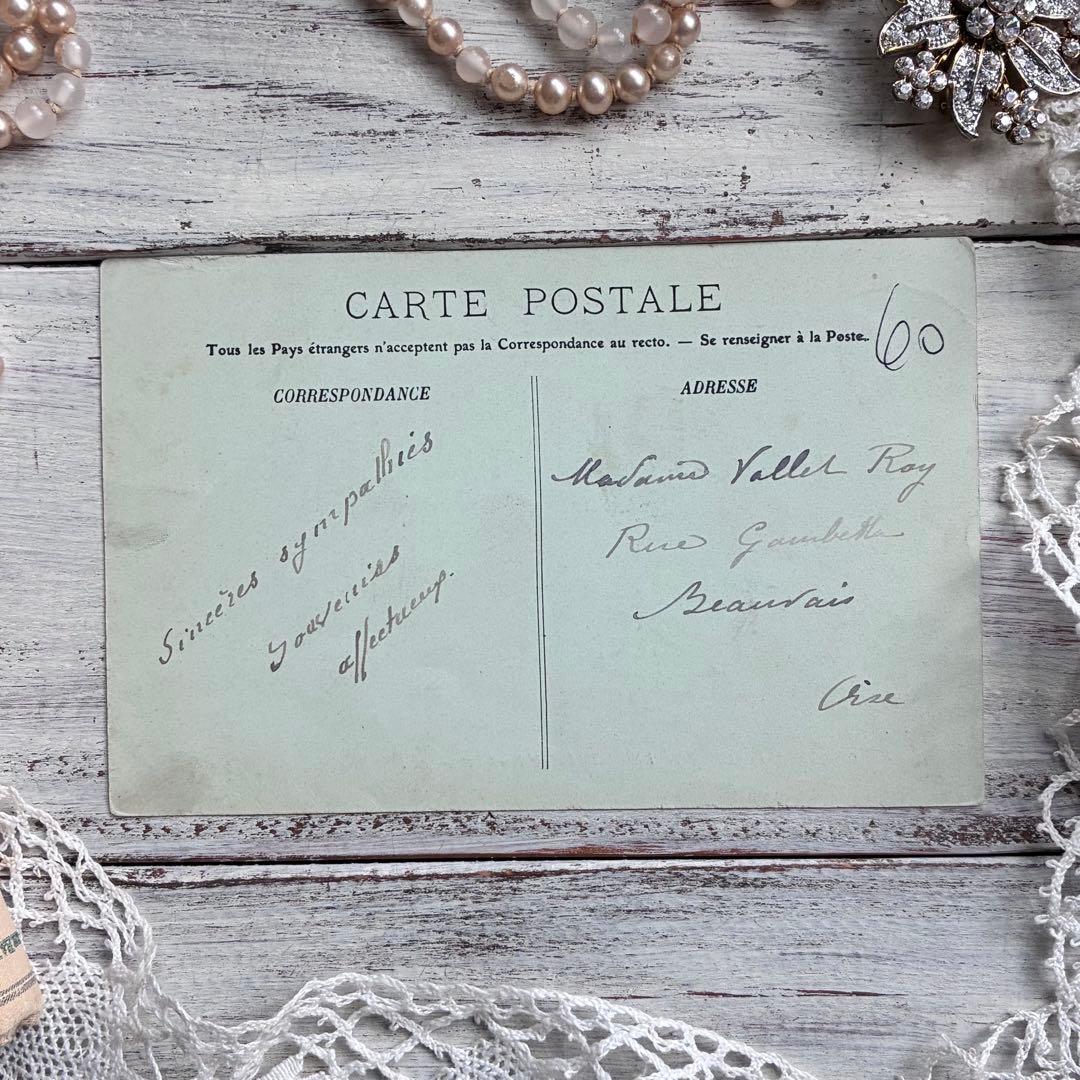 CARTE POSTALE
Tous les Pays étrangers n'acceptent pas la Correspondance au recto. — Se renseigner à la Poste.
60
CORRESPONDANCE
Sincères sympathies
souvenirs
affectueux.
ADRESSE
Madame Vallet Roy
Rue Gambetta
Beauvais
Oise